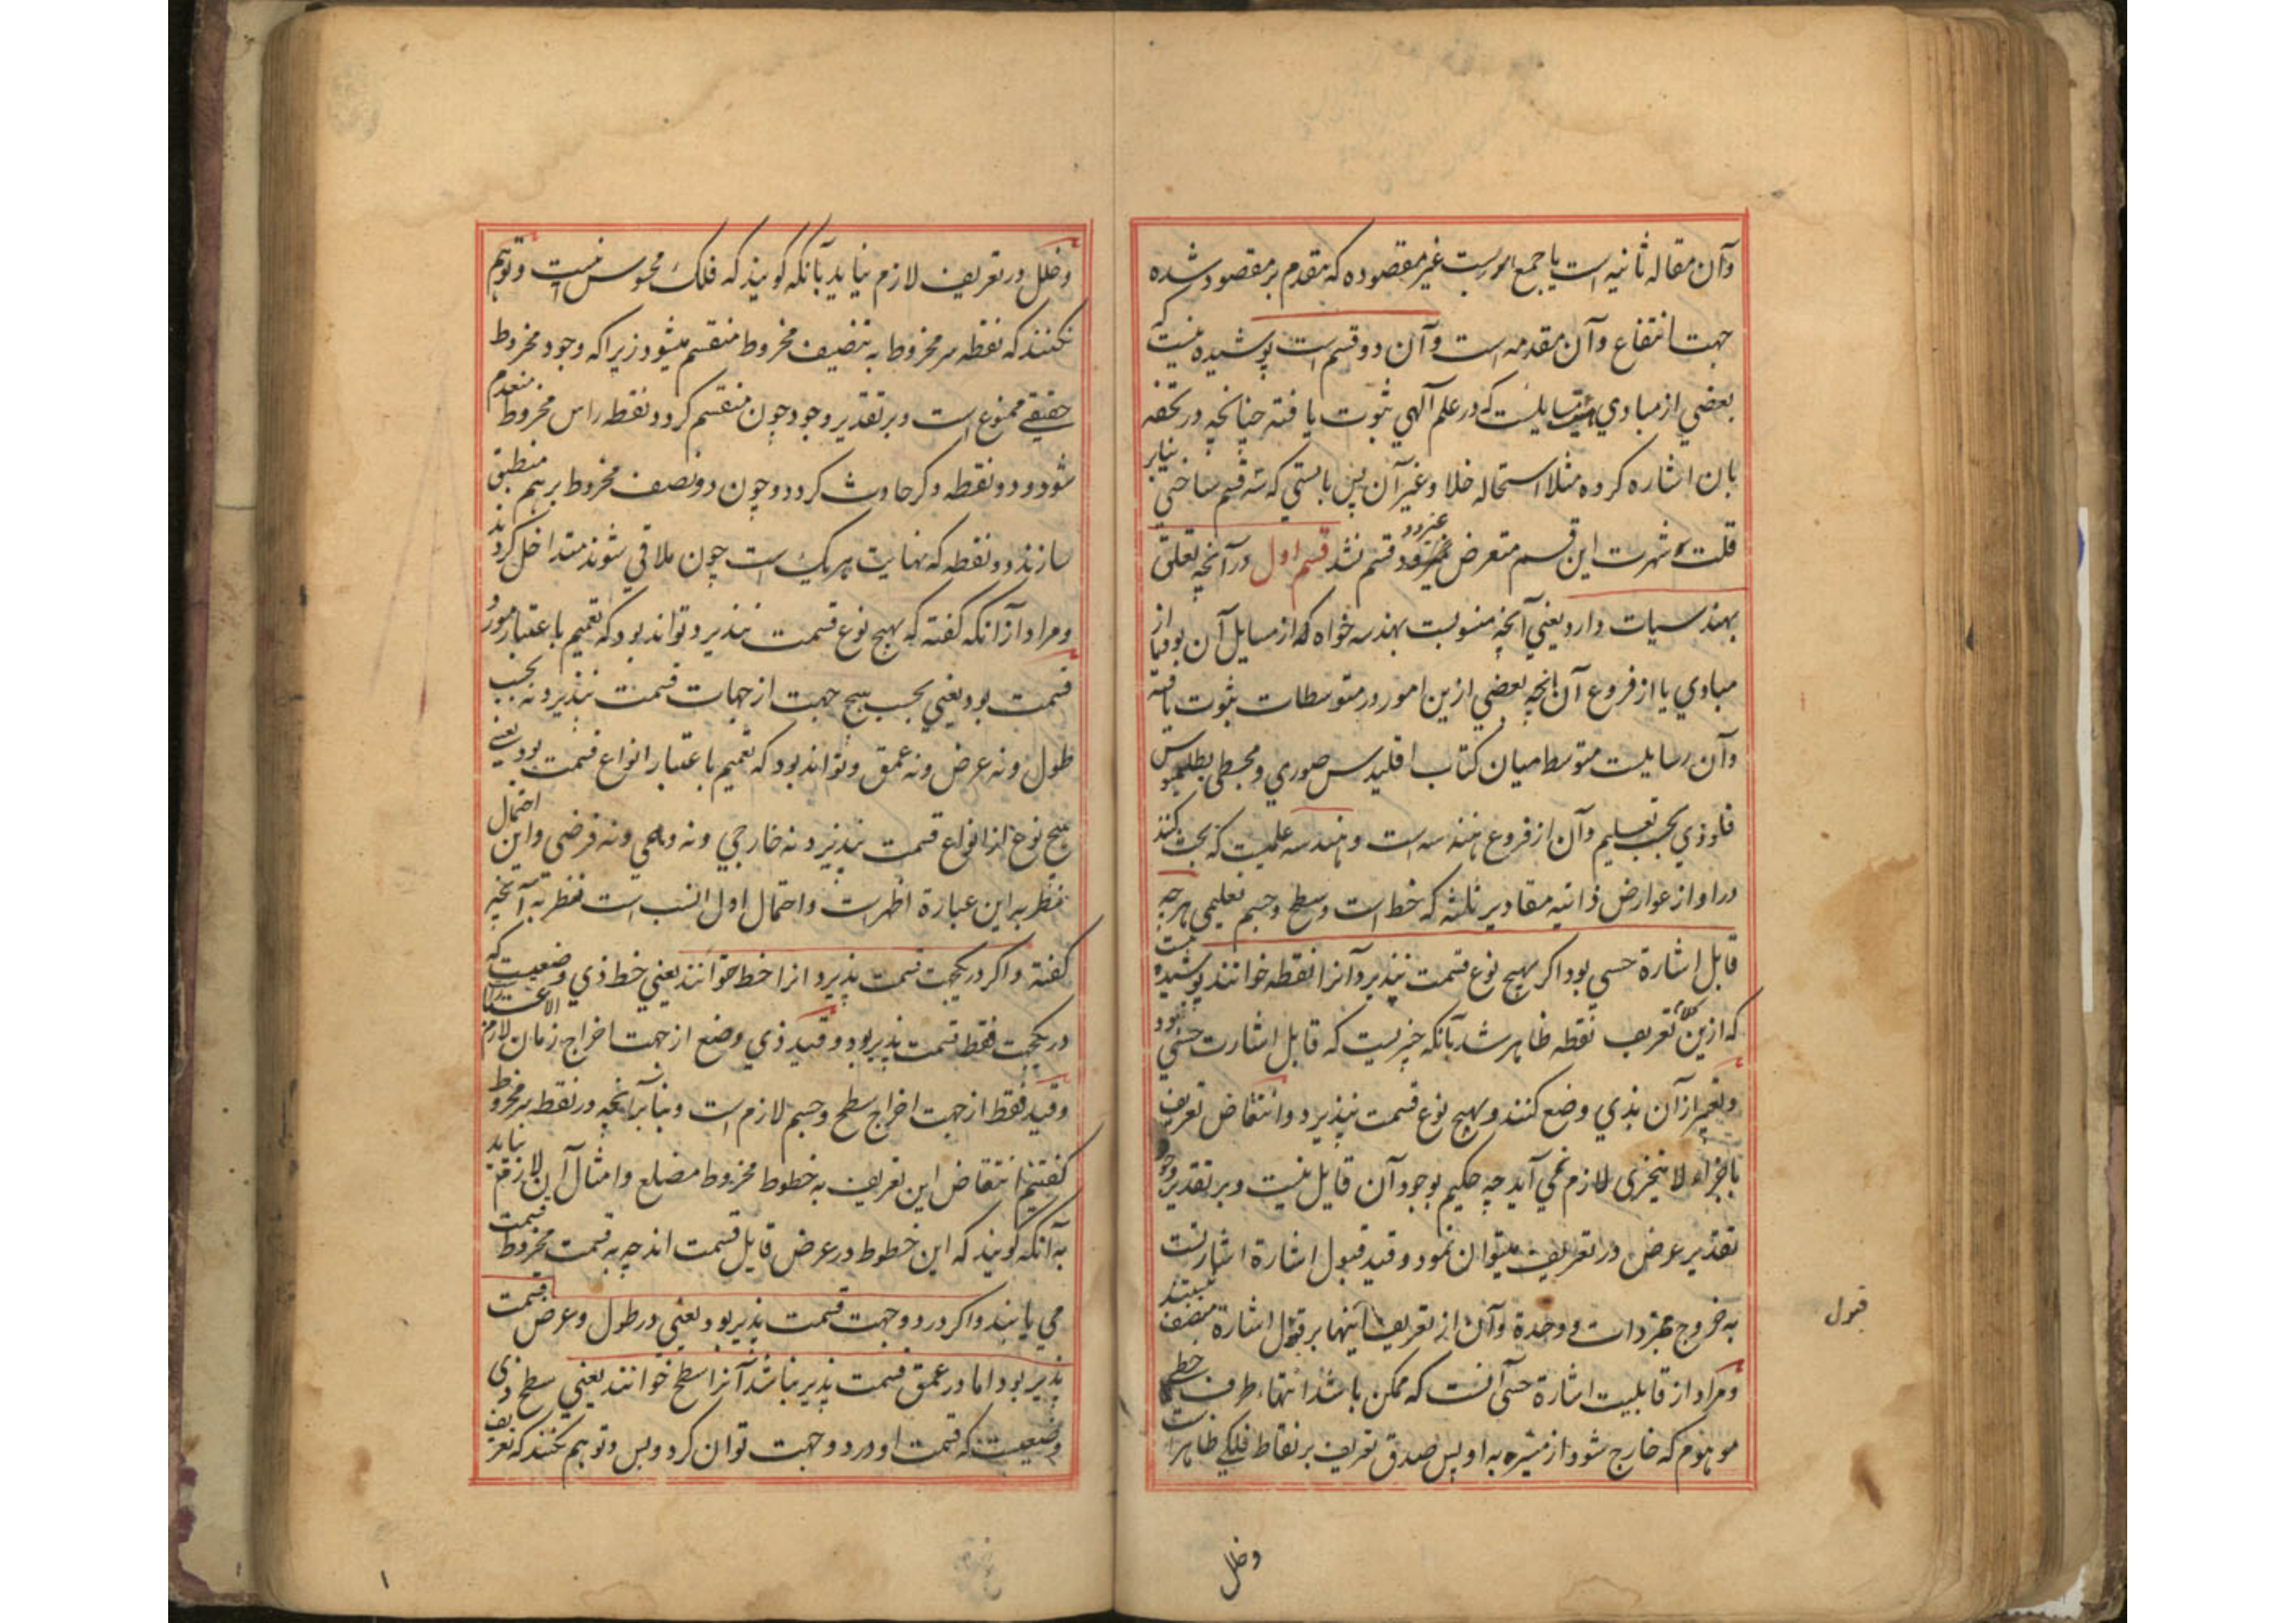 وآن مقاله ثانیه است یا جمع امور یست غیر مقصوده که مقدم بر مقصود شده
جهت انتفاع وآن مقدمه است وآن دو قسم است پوشیده نیست که
بعضی از مبادی مسایلست که در علم آلهی ثبوت یافته چنانچه در تحفه
بان اشاره کرده مثلا استحاله خلا وغیر آن پس بایستی که سه قسم ساختی بنابر
قلت شهرت این قسم متعرض نشد قسم اول در آنچه تعلق
بهندسیات دارد یعنی آنچه منسوبست بهندسه خواه که از مسایل آن بود یا از
مبادی یا از فروع آن آنچه بعضی ازین امور در متوسطات ثبوت یافته
وآن رسایلیست متوسط میان کتاب اقلیدس صوری ومجسطی بطلمیوس
قلوذی بحسب تعلیم وآن از فروع هندسه است وهندسه علمیست که بحث کنند
در او از عوارض ذاتیه مقادیر ثلثه که خط است وسطح وجسم تعلیمی هر چه
قابل اشارة حسی بود اگر بهیچ نوع قسمت نپذیرد آنرا نقطه خوانند پوشیده نیست
که ازین کلام تعریف نقطه ظاهر شد بآنکه چیزیست که قابل اشارت حسی بود
وتعبیر از آن بذی وضع کنند وبهیچ نوع قسمت نپذیرد وانتقاض تعریف
باجزاء لا یتجزی لازم نمی آید چه حکیم بوجود آن قایل نیست وبر تقدیر وجود
تقدیر عرض در تعریف میتوان نمود وقید قبول اشارة اشارتست
به خروج مجردات و وحدة وآن از تعریف اینها بر قبول اشارة متصف نیستند
قبول
ومراد از قابلیت اشارة حسی آنست که ممکن باشد انتهاء طرف خطی
موهوم که خارج شود از مشیر به او پس صدق تعریف بر نقاط فلکی ظاهر است
وخلل
وخلل در تعریف لازم نیاید بآنکه کویند که فلک محسوس نیست وتوهم
نکنند که نقطه سر مخروط به تنصیف مخروط منقسم میشود زیرا که وجود مخروط
حقیقی ممنوع است وبر تقدیر وجود چون منقسم کردد نقطه راس مخروط منعدم
شود ودو نقطه دکر حادث کردد وچون دو نصف مخروط بر هم منطبق
سازند دو نقطه که نهایت هر یک است چون ملاقی شوند متداخل کردند
ومراد از آنکه کفته که بهیچ نوع قسمت نپذیرد تواند بود که تعمیم باعتبار مورد
قسمت بود یعنی بحسب هیچ جهت از جهات قسمت نپذیرد نه بحسب
طول ونه عرض ونه عمق وتواند بود که تعمیم باعتبار انواع قسمت بود یعنی
هیچ نوع از انواع قسمت نپذیرد نه خارجی ونه وهمی ونه فرضی واین احتمال
نظر به این عبارة اظهر است واحتمال اول انسب است نظر به آنچه
کفته واکر در یکجهت قسمت پذیرد انرا خط خوانند یعنی خط ذی وضعیست که
در یکجهت فقط قسمت پذیر بود وقید ذی وضع از جهت اخراج زمان لازم
وقید فقط از جهت اخراج سطح وجسم لازم است وبنابر آنچه در نقطه سر مخروط
کفتیم انتقاض این تعریف به خطوط مخروط مضلع وامثال آن لازم نیاید
به آنکه کویند که این خطوط در عرض قابل قسمت اند چه به قسمت مخروط قسمت
می یابند واکر در دو جهت قسمت پذیر بود یعنی در طول وعرض قسمت
پذیر بود اما در عمق قسمت پذیر نباشد آنرا سطح خوانند یعنی سطح ذی
وضعیست که قسمت او در دو جهت توان کرد وبس وتوهم نکنند که تعریف
۱